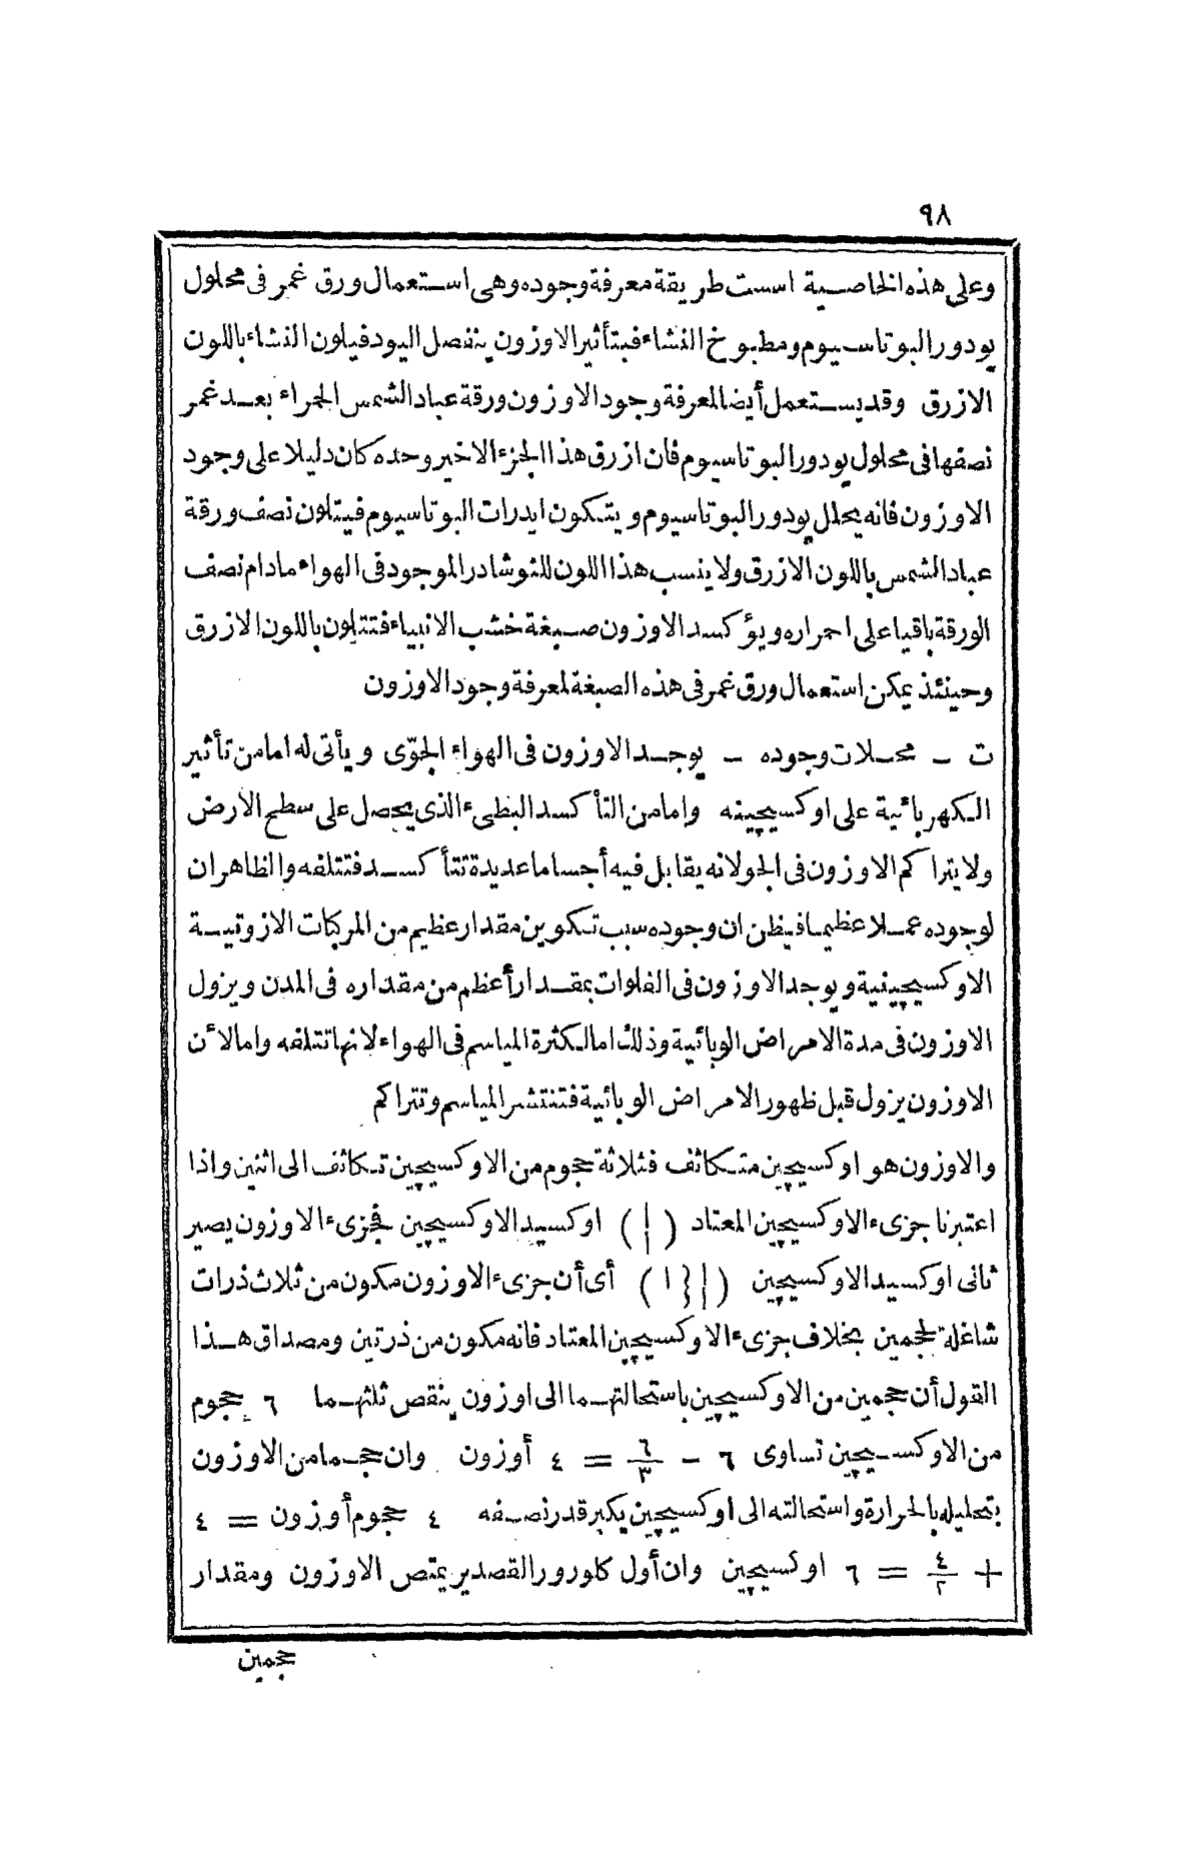 ٩٨
وعلى هذه الخاصية اسست طريقة معرفة وجوده وهى استعمال ورق غمر فى محلول
يودور البوتاسيوم ومطبوخ النشاء فبتأثير الاوزون ينفصل اليود فيلون النشاء باللون
الازرق وقد يستعمل أيضا لمعرفة وجود الاوزون ورقة عباد الشمس الحمراء بعد غمر
نصفها فى محلول يودور البوتاسيوم فان ازرق هذا الجزء الاخير وحده كان دليلا على وجود
الاوزون فانه يحلل يودور البوتاسيوم ويتكون ايدرات البوتاسيوم فيتلون نصف ورقة
عباد الشمس باللون الازرق ولا ينسب هذا اللون للنوشادر الموجود فى الهواء مادام نصف
الورقة باقيا على احمراره ويؤكسد الاوزون صبغة خشب الانبياء فتتلون باللون الازرق
وحينئذ يمكن استعمال ورق غمر فى هذه الصبغة لمعرفة وجود الاوزون
ت ـ محلات وجوده ـ يوجد الاوزون فى الهواء الجوّى ويأتى له اما من تأثير
الكهربائية على اوكسيچينه واما من التأكسد البطىء الذى يحصل على سطح الارض
ولا يتراكم الاوزون فى الجو لانه يقابل فيه أجساما عديدة تتأكسد فتتلفه والظاهر ان
لوجوده عملا عظيما فيظن ان وجوده سبب تكوين مقدار عظيم من المركبات الازوتية
الاوكسيچينية ويوجد الاوزون فى الفلوات بمقدار أعظم من مقداره فى المدن ويزول
الاوزون فى مدة الامراض الوبائية وذلك اما لكثرة المياسم فى الهواء لانها تتلفه واما لأن
الاوزون يزول قبل ظهور الامراض الوبائية فتنتشر المياسم وتتراكم
والاوزون هو اوكسيچين متكاثف فثلاثة حجوم من الاوكسيچين تتكاثف الى اثنين واذا
اعتبرنا جزىء الاوكسيچين المعتاد (أ|) اوكسيد الاوكسيچين فجزىء الاوزون يصير
ثانى اوكسيد الاوكسيچين (أ|{ا) أى أن جزىء الاوزون مكون من ثلاث ذرات
شاغلة لحجمين بخلاف جزىء الاوكسيچين المعتاد فانه مكون من ذرتين ومصداق هذا
القول أن حجمين من الاوكسيچين باستحالتهما الى اوزون ينقص ثلثهما ٦ حجوم
من الاوكسيچين تساوى ٦ − ٦/٣ = ٤ أوزون وان حجما من الاوزون
بتحليله بالحرارة واستحالته الى اوكسيچين يكبر قدر نصفه ٤ حجوم أوزون = ٤
+ ٤/٢ = ٦ اوكسيچين وان أول كلورور القصدير يمتص الاوزون ومقدار
حجمين